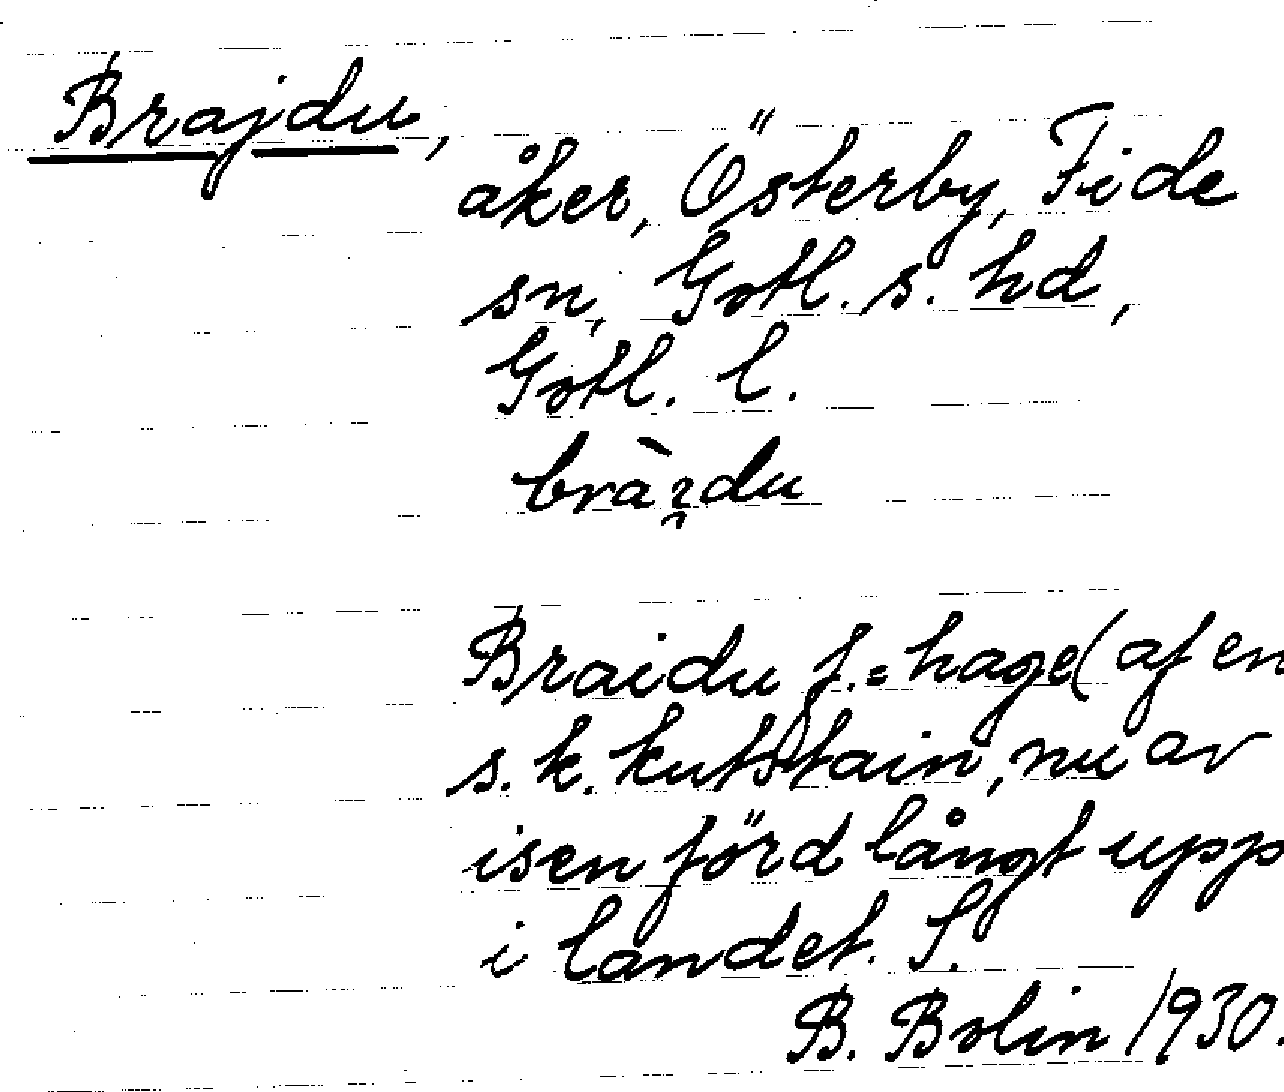 Brajdu,
åker, Österby, Fide
sn, Gotl. s. hd,
Gotl. l.
Braidu f. = hage (af en
s.k. kutstain, nu av
isen förd långt upp
i landet. S.
B. Bolin 1930.